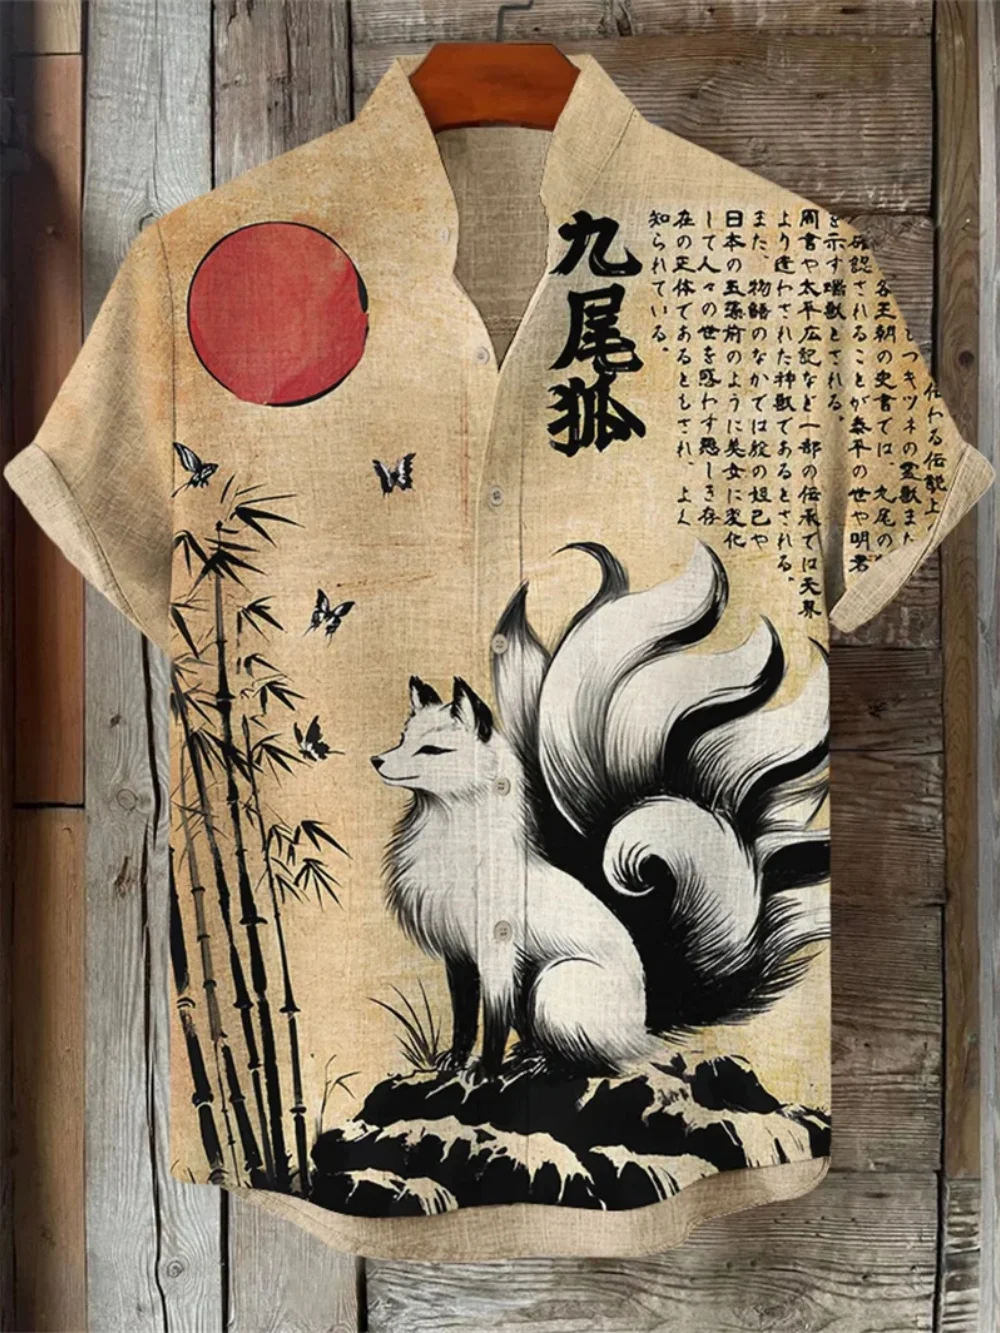 九尾狐
伝わる伝説上
つキツネの霊獣また
各王朝の史書では、九尾の
確認されることが泰平の世や明君
を示す瑞獣とされる。
周書や太平広記など一部の伝承では天界
より遣わされた神獣であるとされる。
また、物語のなかでは殷の妲己や
日本の玉藻前のように美女に変化
して人々の世を惑わす悪しき存
在の正体であるともされ、よく
知られている。